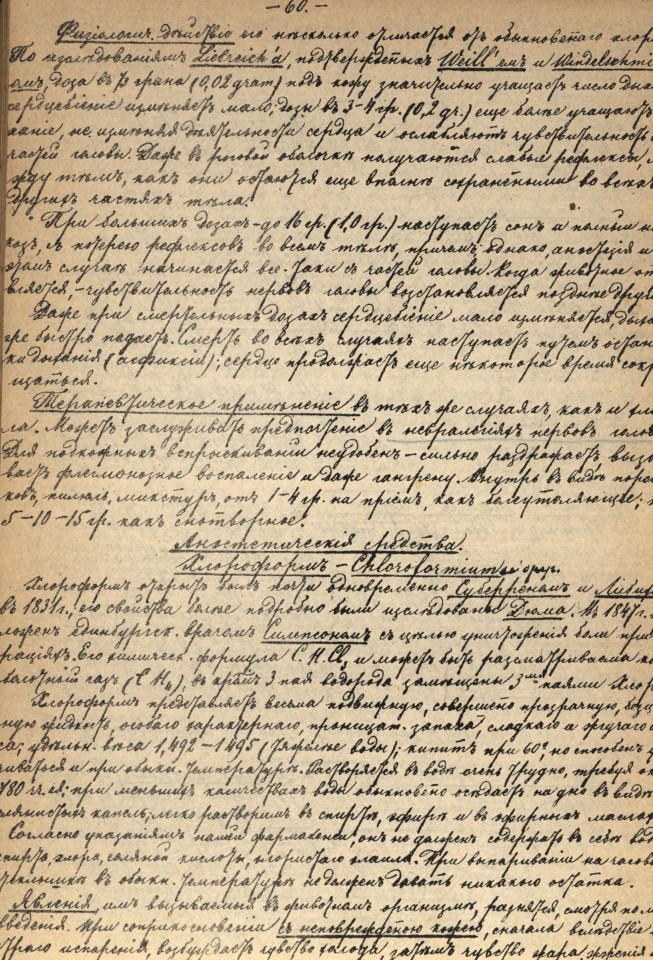 — 60. —
Физіологич. дѣйствіе его нѣсколько отличается отъ обыкновеннаго хлор
По изслѣдованіямъ Liebreich'а, подтвержденныхъ Weill'емъ и Windelschmi
омъ, доза въ грана (0,02 gram) подъ кожу значительно учащаетъ число дыха
сердцебіеніе измѣняетъ мало; дозы въ 3–4 гр. (0,2 gr.) еще болѣе учащаютъ
ханіе, не измѣняя дѣятельности сердца и ослабляютъ чувствительность
частей головы. Даже въ роговой оболочкѣ получаются слабые рефлексы, м
жду тѣмъ, какъ они остаются еще вполнѣ сохраненными во всѣхъ
другихъ частяхъ тѣла.
При большихъ дозахъ – до 16 гр. (1,0 гр.) наступаетъ сонъ и полный на
козъ, съ потерею рефлексовъ во всемъ тѣлѣ, причемъ однако, анэстезія и
этомъ случаѣ начинается все-таки съ частей головы. Когда животное оп
вляется, – чувствительность нервовъ головы возстановляется позднѣе други
Даже при смертельныхъ дозахъ сердцебіеніе мало измѣняется, дыха
же быстро падаетъ. Смерть во всѣхъ случаяхъ наступаетъ путемъ остан
ки дыханія (асфиксіи); сердце продолжаетъ еще нѣкоторое время сокр
щаться.
Терапевтическое примѣненіе въ тѣхъ же случаяхъ, какъ и хло
ла. Можетъ заслуживать предпочтеніе въ невралгіяхъ нервовъ голов
Для подкожныхъ впрыскиваній неудобенъ – сильно раздражаетъ вызы
ваетъ флегмонозное воспаленіе и даже гангрену. Внутрь въ видѣ порош
ковъ, пилюль, микстуръ, отъ 1–4 гр. на пріемъ, какъ болеутоляющее;
5–10–15 гр. какъ снотворное.
Анэстетическія средства.
Хлороформъ – Chloroformium
Хлороформъ открытъ былъ почти одновременно Суберреномъ и Либих
въ 1831 г.; его свойства болѣе подробно были изслѣдованы Дюма. Въ 1847 г.
ложенъ единбургск. врачомъ Симпсономъ съ цѣлью уничтоженія боли при
раціяхъ. Его химическ. формула C. H. Cl3 и можетъ быть разсматриваема ка
болотный газъ (C H4), въ кот. 3 пая водорода замѣщены 3мя паями хлор
Хлороформъ представляетъ весьма подвижную, совершенно прозрачную, безцв
ную жидкость, особаго характернаго, проницат. запаха, сладкаго и жгучаго
са; удѣльн. вѣса 1,492–1,495 (тяжелѣе воды); кипитъ при 60°, но способенъ у
чиваться и при обыкн. температурѣ. Растворяется въ водѣ очень трудно, требуя ок
при меньшихъ количествахъ воды обыкновенно осѣдаетъ на дно въ видѣ
слянистыхъ капель; легко растворимъ въ спиртѣ, эфирѣ и въ эфирныхъ маслахъ
Согласно указаніямъ нашей фармакопеи, онъ не долженъ содержать въ себѣ вод
спирта, хлора, соляной кислоты, хлористаго эτила. При выпариваніи на часово
стеклышкѣ въ обыкн. температурѣ не долженъ давать никакого остатка.
Явленія, имъ вызываемыя въ животномъ организмѣ, разнятся, смотря по м
введенія. При соприкосновеніи съ неповрежденою кожею, сначала вслѣдствіе
страго испаренія, возбуждаетъ чувство холода, затѣмъ чувство жара, жженія